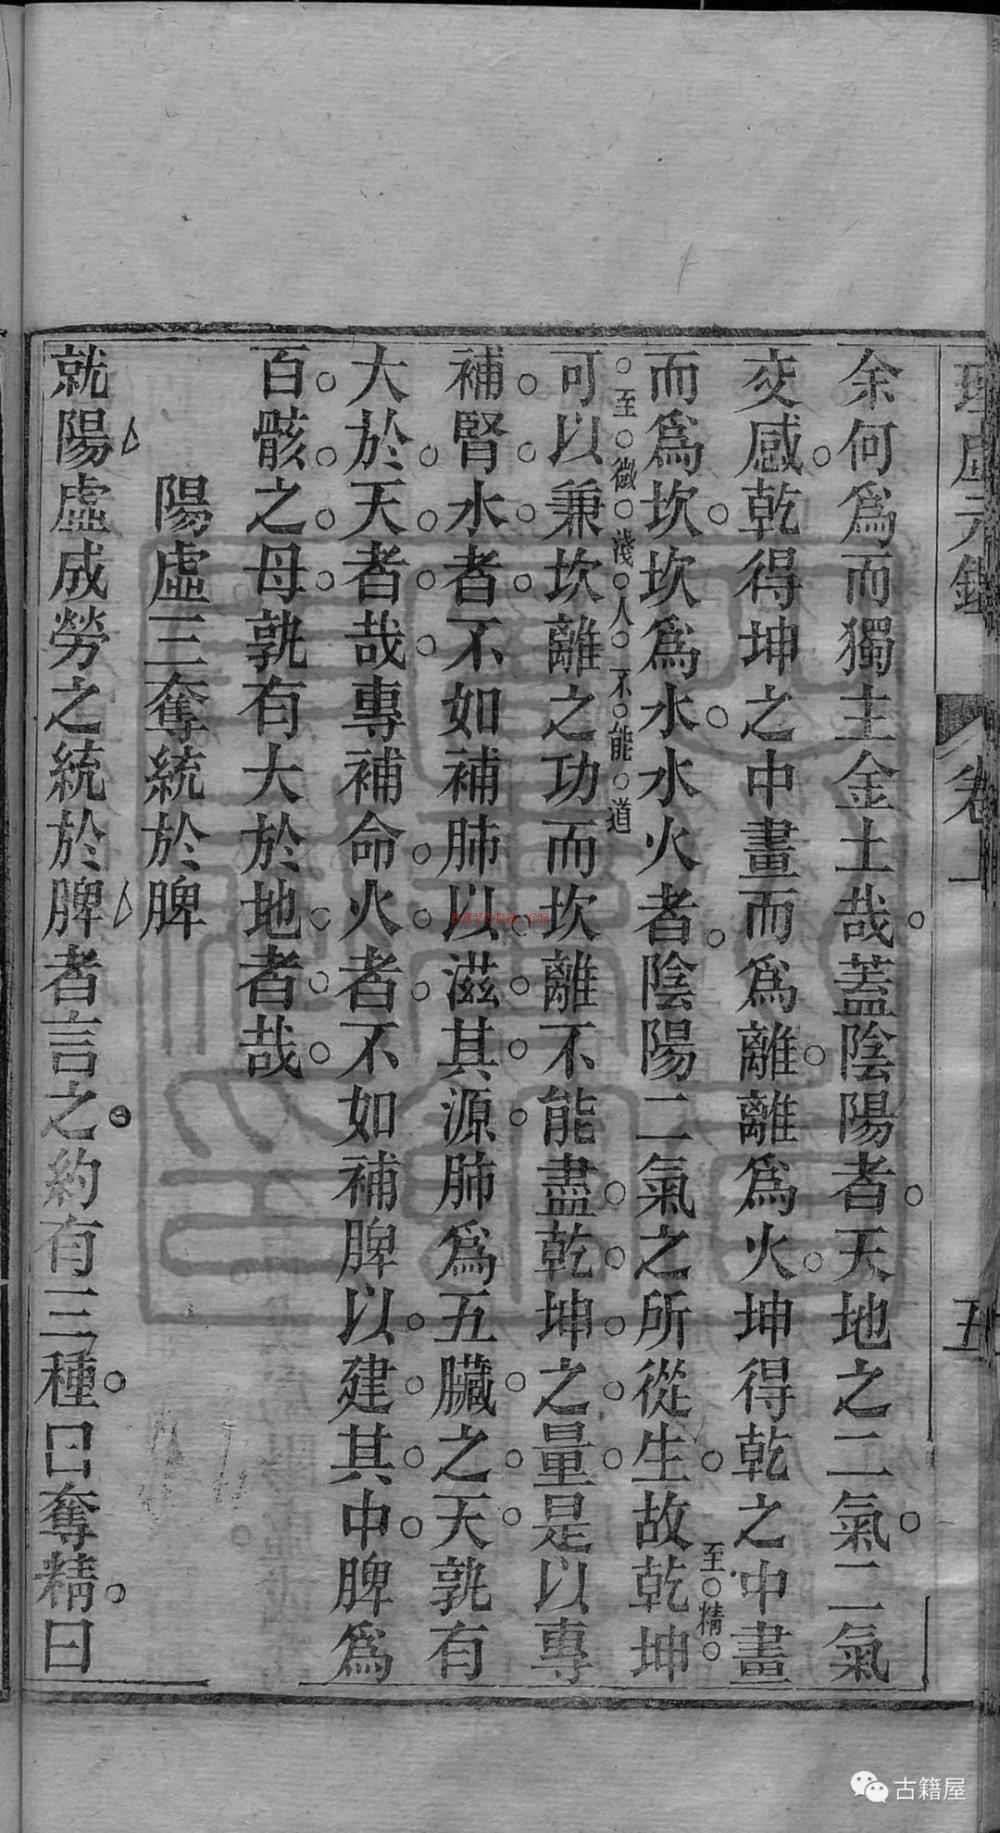 理虛元鑑
卷上
五
余何爲而獨主金土哉蓋陰陽者天地之二氣二氣
交感乾得坤之中畫而爲離離爲火坤得乾之中畫
而爲坎坎爲水水火者陰陽二氣之所從生故乾坤
至精
至微淺人不能道
可以兼坎離之功而坎離不能盡乾坤之量是以專
補腎水者不如補肺以滋其源肺爲五臟之天孰有
大於天者哉專補命火者不如補脾以建其中脾爲
百骸之母孰有大於地者哉
陽虛三奪統於脾
就陽虛成勞之統於脾者言之約有三種曰奪精曰
古籍屋